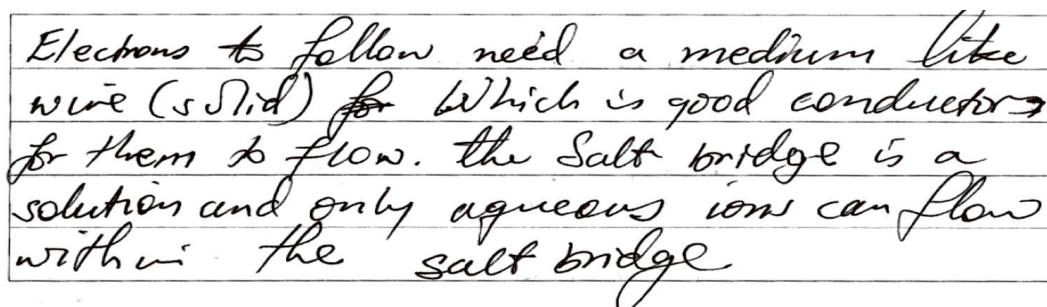 Electrons to follow need a medium like
wire (solid) for Which is good conductors
for them to flow. the Salt bridge is a
solution and only aqueous ions can flow
within the salt bridge